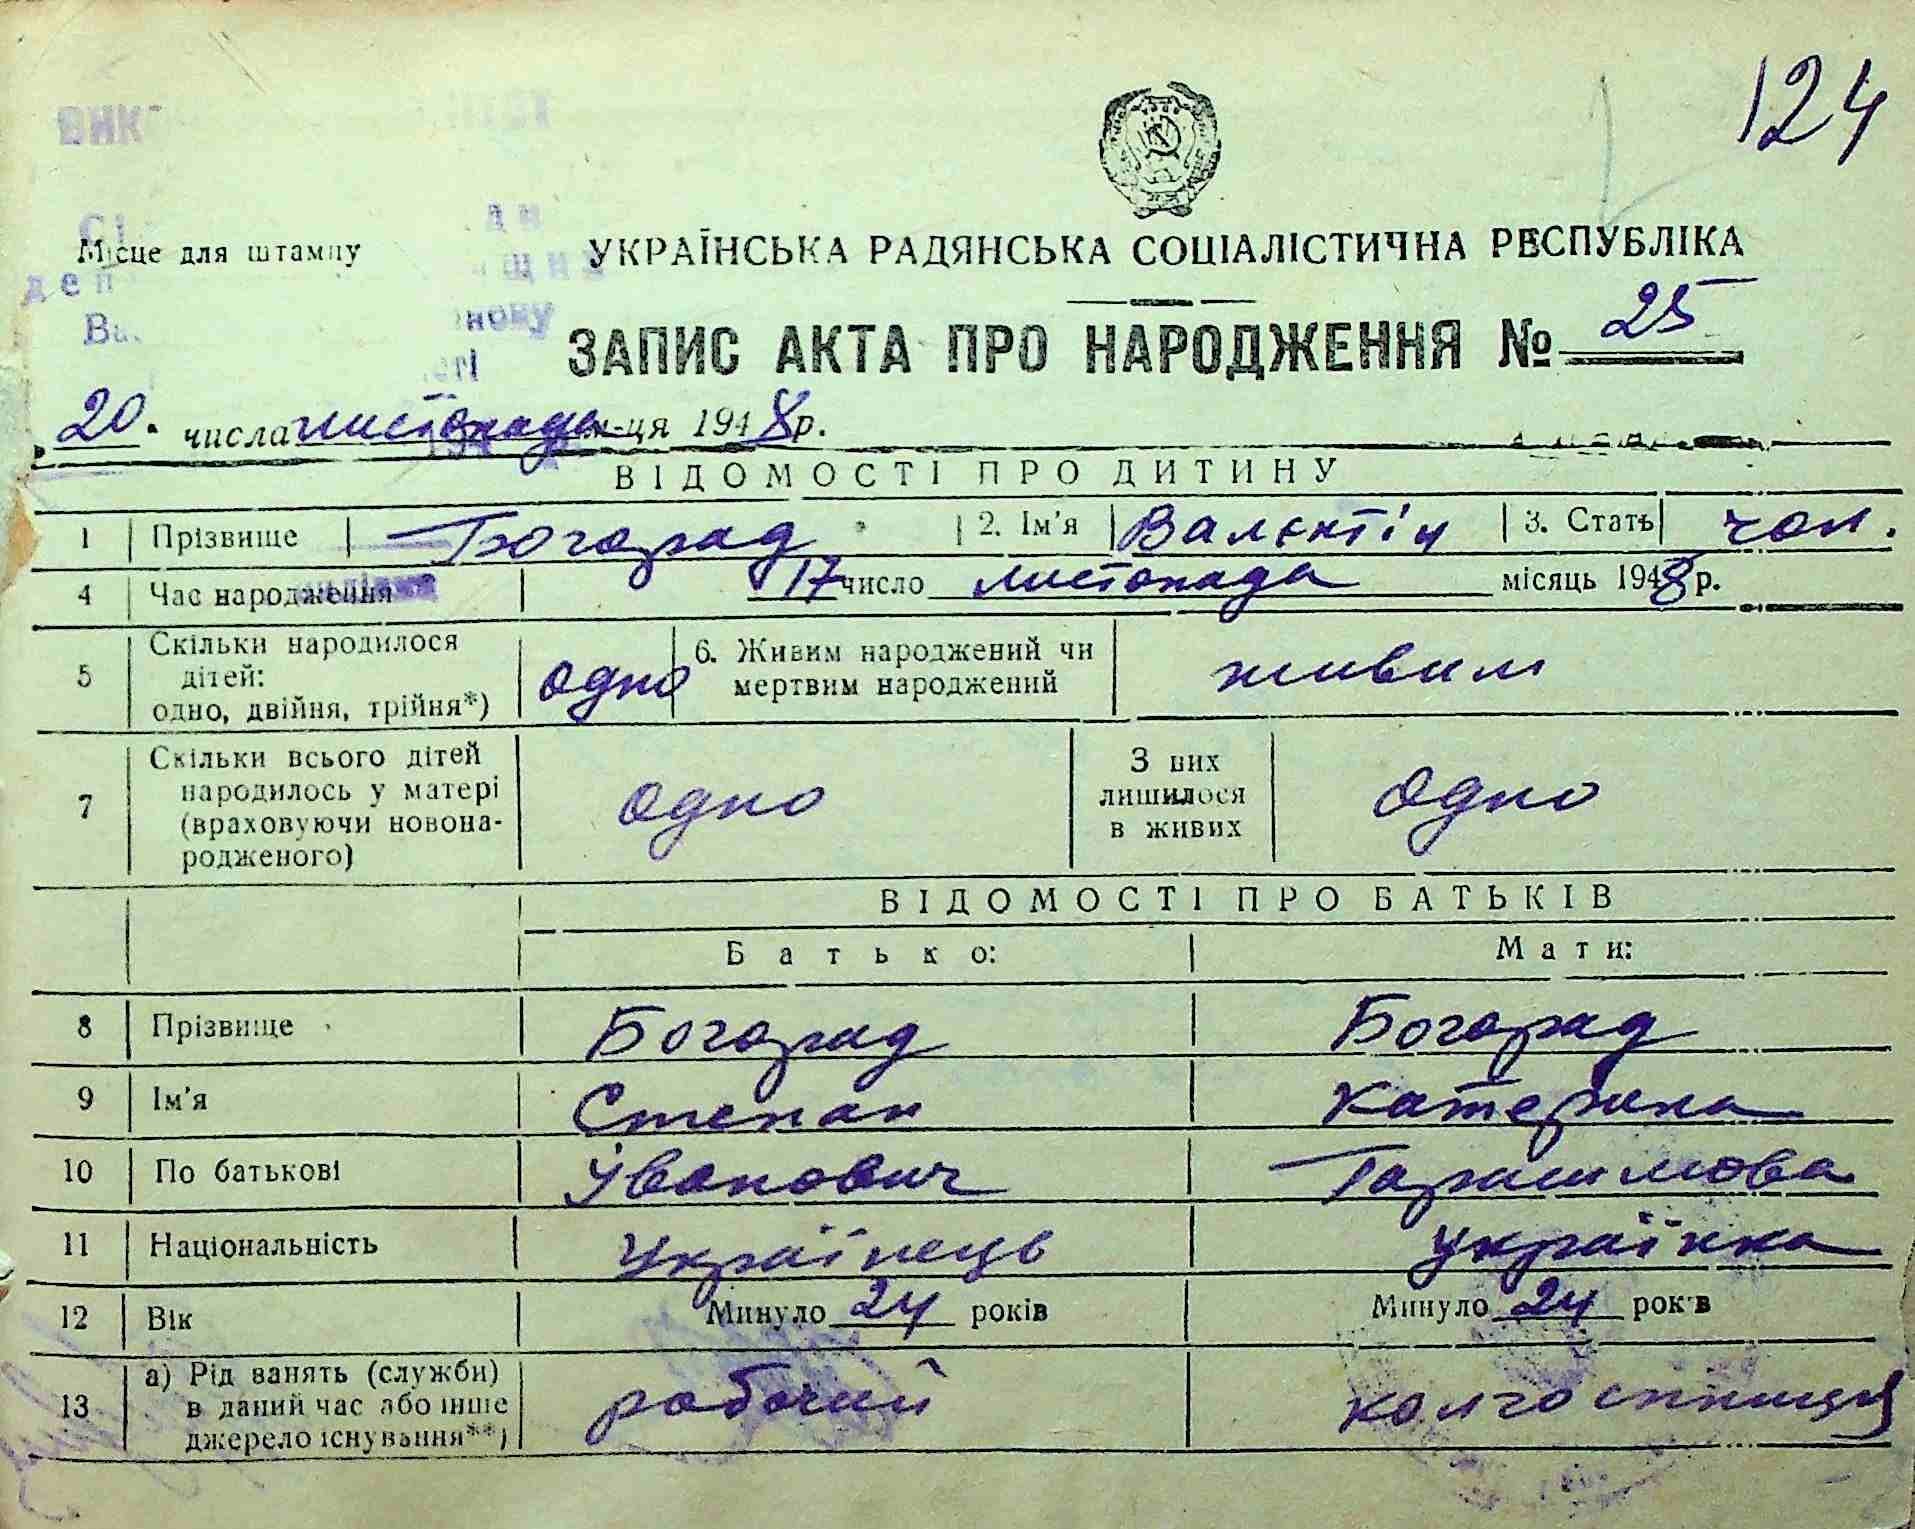 124
Місце для штампу
УКРАЇНСЬКА РАДЯНСЬКА СОЦІАЛІСТИЧНА РЕСПУБЛІКА
ЗАПИС АКТА ПРО НАРОДЖЕННЯ № 25
20. числа листопада м-ця 1948 р.
ВІДОМОСТІ ПРО ДИТИНУ
1 Прізвище Богорад 2. Ім'я Валєнтін 3. Стать чол.
4 Час народження 17 число листопада місяць 1948 р.
5 Скільки народилося дітей: одно, двійня, трійня*) одно 6. Живим народжений чи мертвим народжений живим
7 Скільки всього дітей народилось у матері (враховуючи новонародженого) одно З них лишилося в живих одно
ВІДОМОСТІ ПРО БАТЬКІВ
Батько: Мати:
8 Прізвище Богорад Богорад
9 Ім'я Степан Катерина
10 По батькові Іванович Гарашимова
11 Національність Українець Українка
12 Вік Минуло 24 років Минуло 24 років
13 а) Рід занять (служби) в даний час або інше джерело існування**) робочий колгоспниця